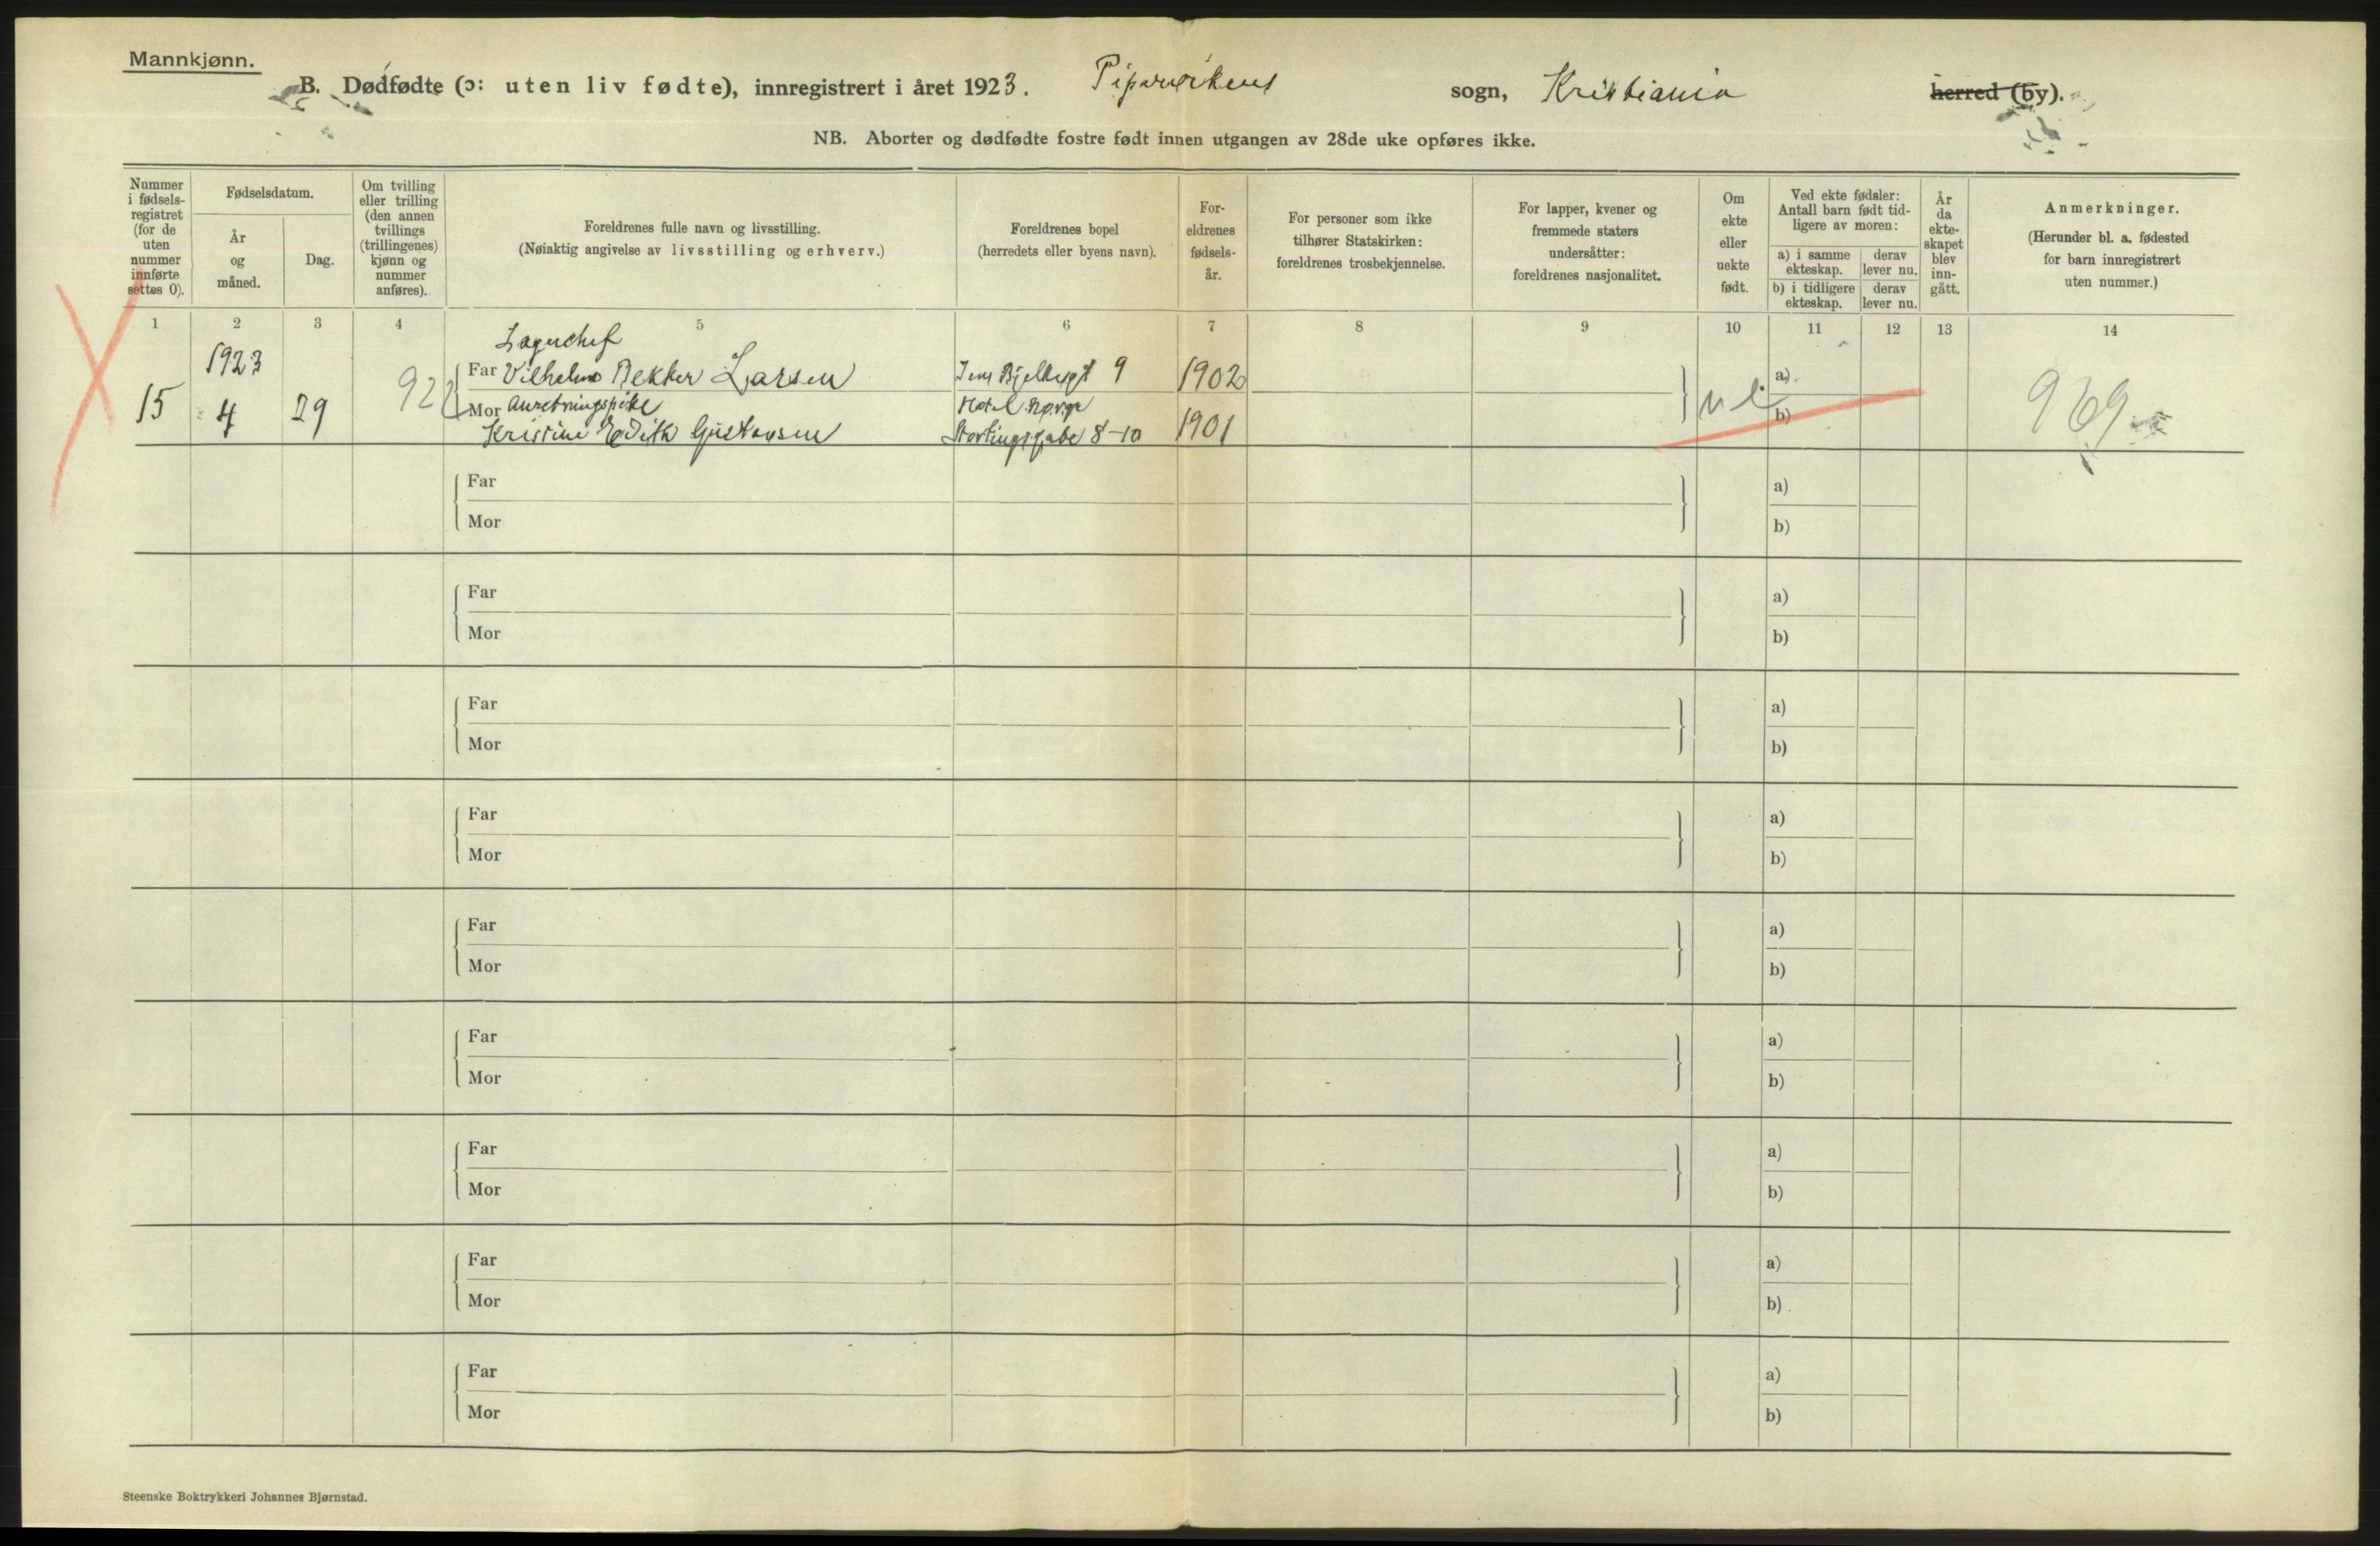 Mannkjønn.
B. Dødfødte (ɔ: uten liv fødte), innregistrert i året 1923. Pipervikens sogn, Kristiania herred (by).
NB. Aborter og dødfødte fostre født innen utgangen av 28de uke opføres ikke.
Nummer
i fødsels-
registret
(for de
uten
nummer
innførte
settes 0).
Fødselsdatum.
År
og
måned.
Dag.
Om tvilling
eller trilling
(den annen
tvillings
(trillingenes)
kjønn og
nummer
anføres).
Foreldrenes fulle navn og livsstilling.
(Nøiaktig angivelse av livsstilling og erhverv.)
Foreldrenes bopel
(herredets eller byens navn).
For-
eldrenes
fødsels-
år.
For personer som ikke
tilhører Statskirken:
foreldrenes trosbekjennelse.
For lapper, kvener og
fremmede staters
undersåtter:
foreldrenes nasjonalitet.
Om
ekte
eller
uekte
født.
Ved ekte fødsler:
Antall barn født tid-
ligere av moren:
a) i samme
ekteskap.
derav
lever nu.
b) i tidligere
ekteskap.
derav
lever nu.
År
da
ekte-
skapet
blev
inn-
gått.
Anmerkninger.
(Herunder bl. a. fødested
for barn innregistrert
uten nummer.)
1 2 3 4 5 6 7 8 9 10 11 12 13 14
Lagerchef
1923 Far Vilhelm Bekker Larsen Jens Bjelkesgt 9 1902 a)
15 4 29 Mor Anretningspike Hotel Norge b) 969
Kristine Edith Gustavsen Stortingsgate 8-10 1901
Far a)
Mor b)
Far a)
Mor b)
Far a)
Mor b)
Far a)
Mor b)
Far a)
Mor b)
Far a)
Mor b)
Far a)
Mor b)
Far a)
Mor b)
Far a)
Mor b)
Steenske Boktrykkeri Johannes Bjørnstad.